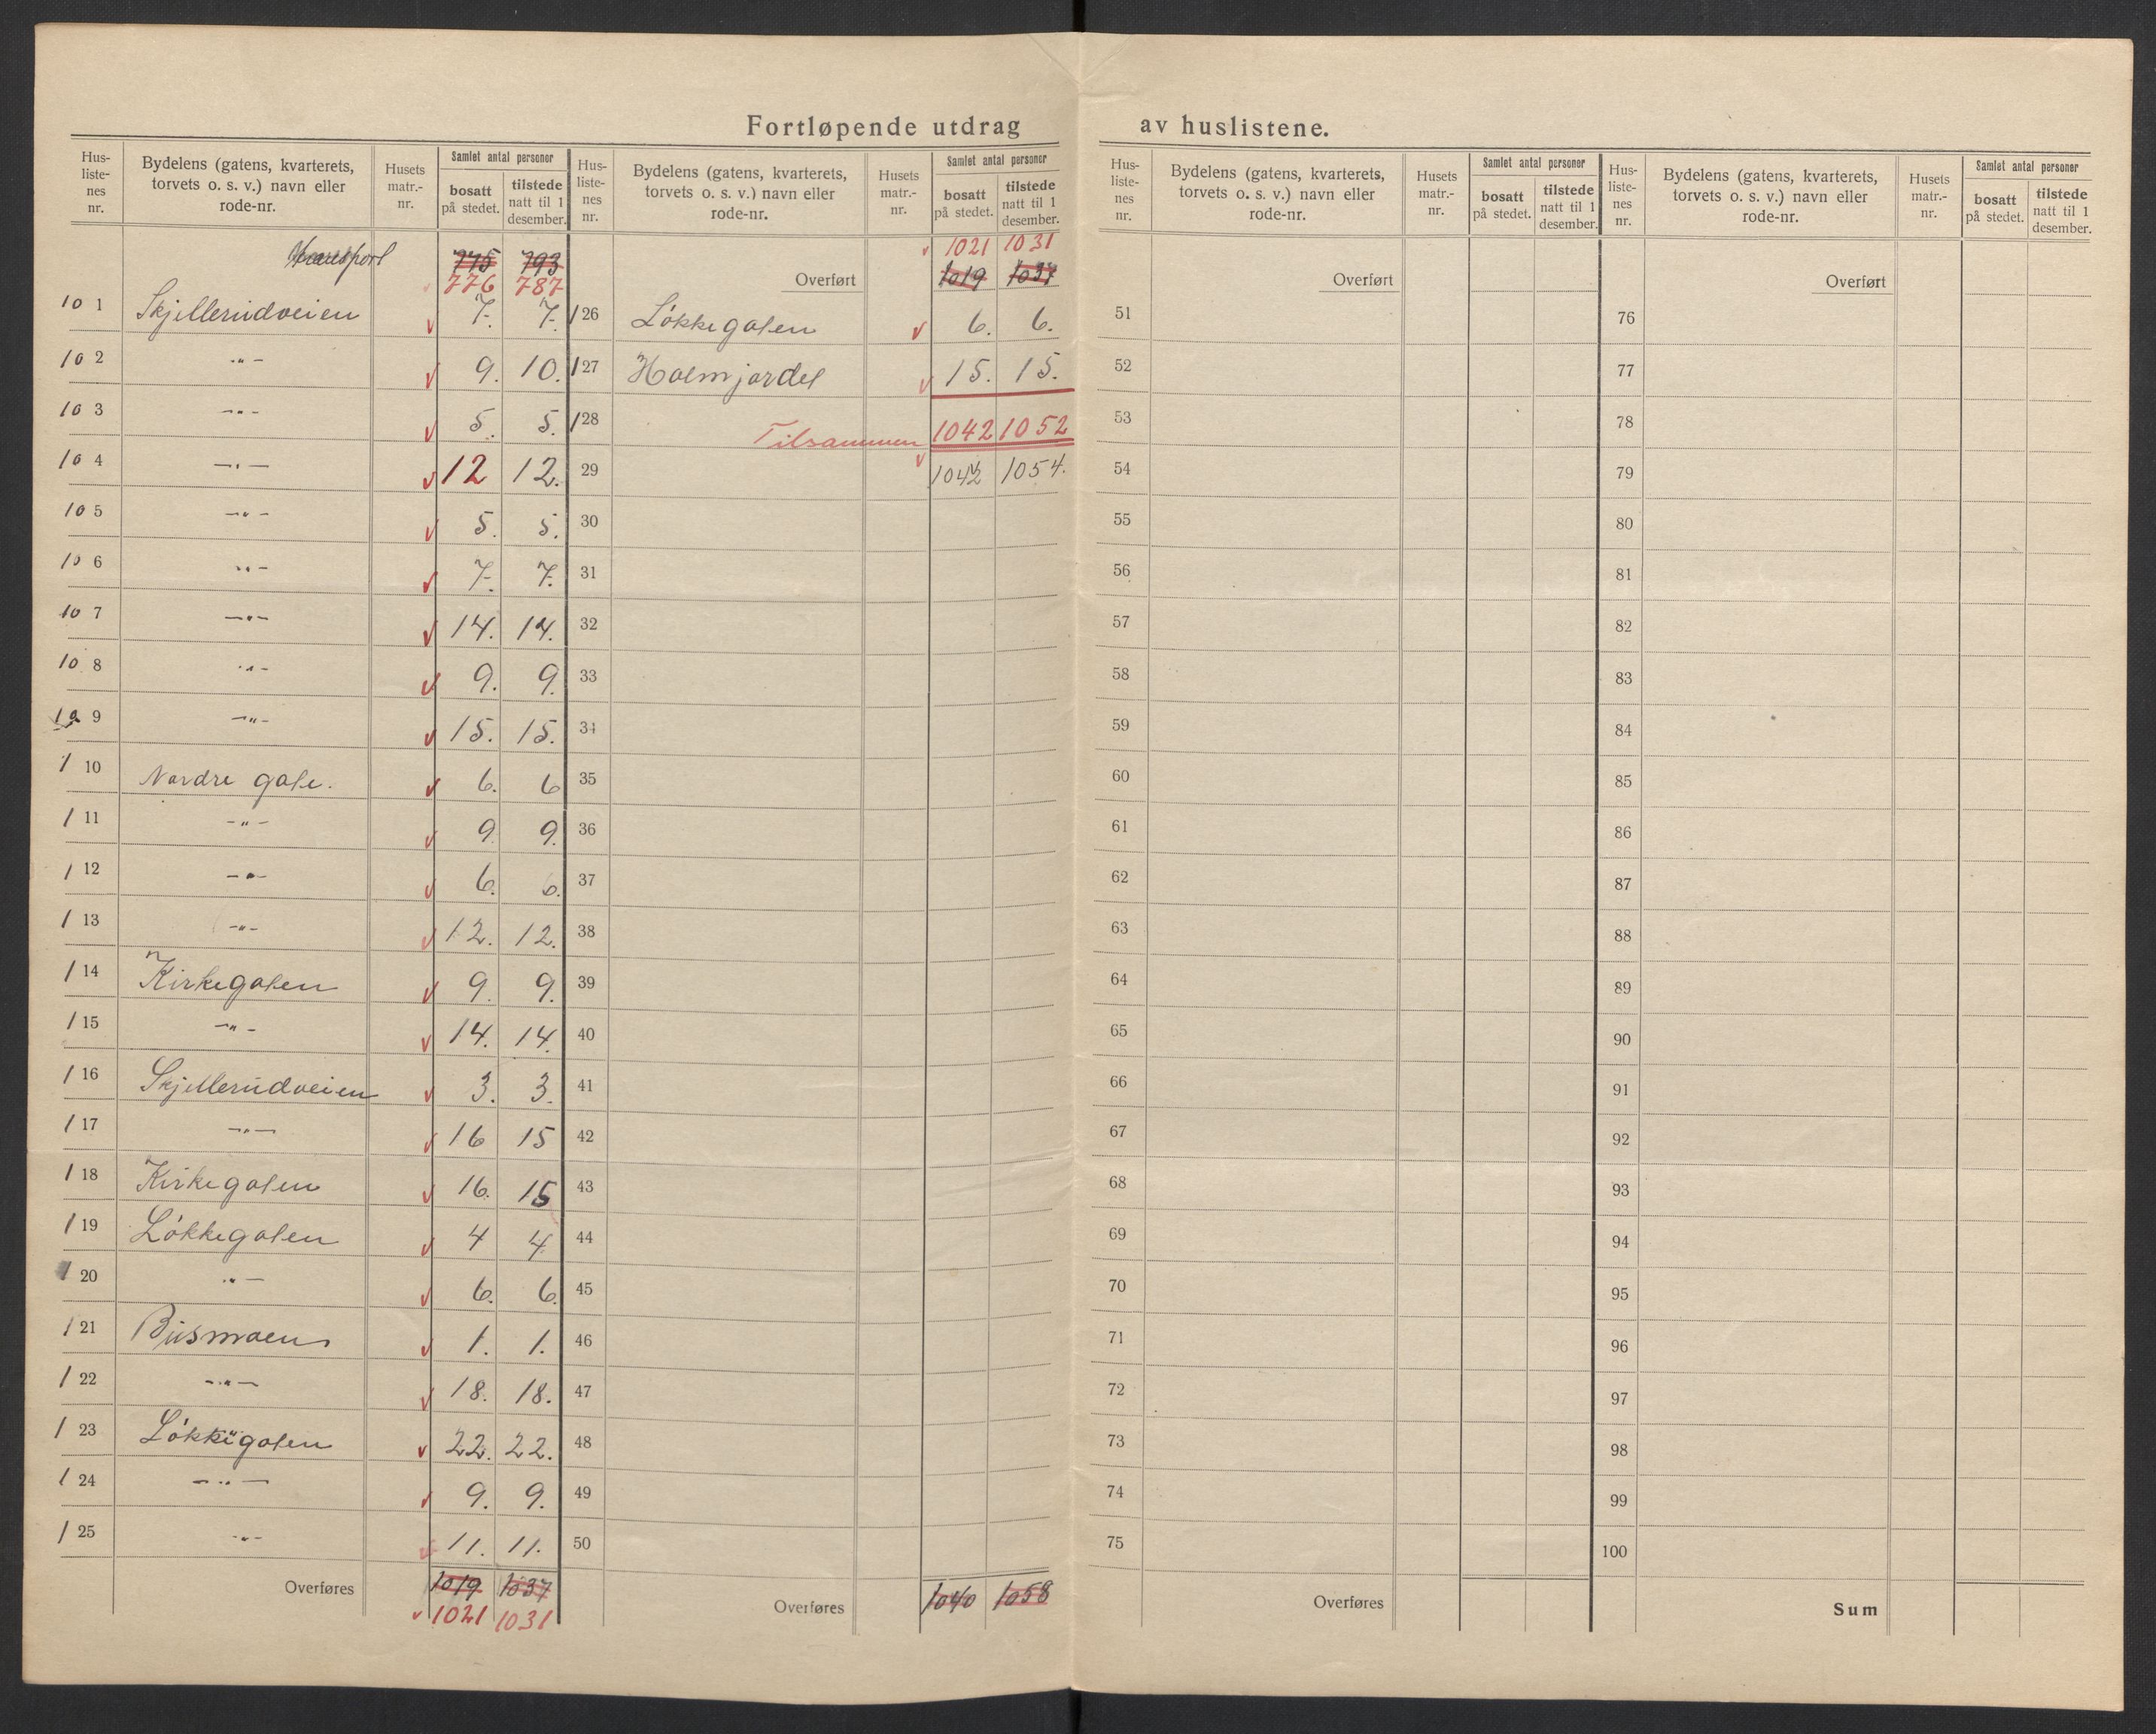 Fortløpende utdrag av huslistene.
Hus-listenes nr. | Bydelens (gatens, kvarterets, torvets o. s. v.) navn eller rode-nr. | Husets matr.-nr. | Samlet antal personer | bosatt på stedet. | tilstede natt til 1 desember.
Transport 775 793
776 787
101 Skjellerudveien v 7. 7.
102 -"- v 9. 10.
103 -"- v 5. 5.
104 -"- v 12 12.
105 -"- v 5. 5.
106 -"- v 7. 7.
107 -"- v 14. 14.
108 -"- v 9. 9.
109 -"- v 15. 15.
110 Nordre gate. v 6. 6
111 -"- v 9. 9.
112 -"- v 6. 6.
113 -"- v 12. 12.
114 Kirkegaten v 9. 9.
115 -"- v 14. 14.
116 Skjellerudveien v 3. 3.
117 -"- v 16 15
118 Kirkegaten v 16. 15
119 Løkkegaten v 4 4
120 -"- v 6. 6.
121 Busmoen v 1. 1.
122 -"- v 18. 18.
123 Løkkegaten v 22. 22.
124 -"- v 9. 9.
125 -"- v 11. 11.
Overføres 1019 1037
v 1021 1031
Hus-listenes nr. | Bydelens (gatens, kvarterets, torvets o. s. v.) navn eller rode-nr. | Husets matr.-nr. | Samlet antal personer | bosatt på stedet. | tilstede natt til 1 desember.
v 1021 1031
Overført 1019 1037
126 Løkkegaten v 6. 6.
127 Holmjordet v 15. 15.
128 Tilsammen 1042 1052
29 v 1042 1054.
30
31
32
33
34
35
36
37
38
39
40
41
42
43
44
45
46
47
48
49
50
Overføres 1040 1058
Hus-listenes nr. | Bydelens (gatens, kvarterets, torvets o. s. v.) navn eller rode-nr. | Husets matr.-nr. | Samlet antal personer | bosatt på stedet. | tilstede natt til 1 desember.
Overført
51
52
53
54
55
56
57
58
59
60
61
62
63
64
65
66
67
68
69
70
71
72
73
74
75
Overføres
Hus-listenes nr. | Bydelens (gatens, kvarterets, torvets o. s. v.) navn eller rode-nr. | Husets matr.-nr. | Samlet antal personer | bosatt på stedet. | tilstede natt til 1 desember.
Overført
76
77
78
79
80
81
82
83
84
85
86
87
88
89
90
91
92
93
94
95
96
97
98
99
100
Sum